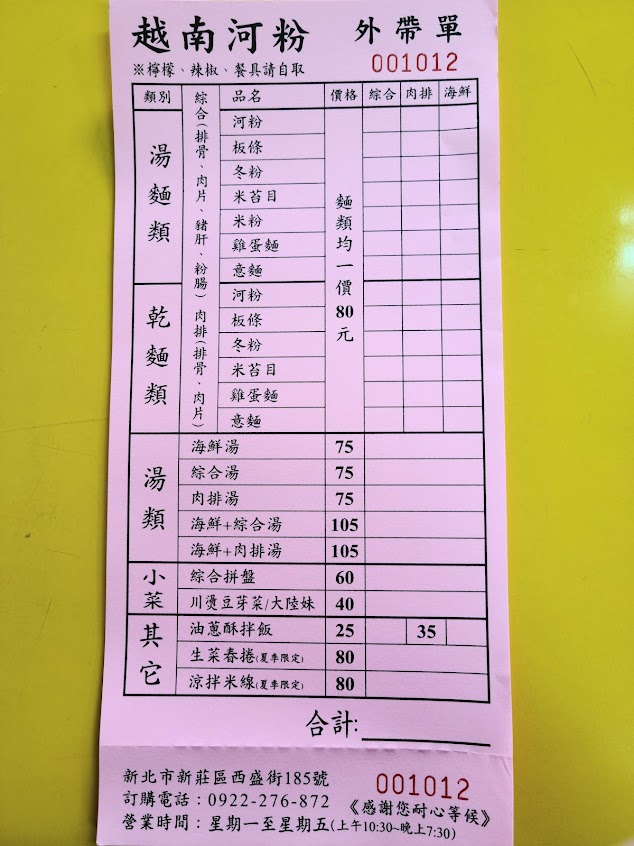 越南河粉 外帶單
※檸檬、辣椒、餐具請自取 001012
類別 綜合(排骨、肉片、豬肝、粉腸) 肉排(排骨、肉片) 品名 價格 綜合 肉排 海鮮
湯麵類
河粉
板條
冬粉
米苔目
米粉
雞蛋麵
意麵
麵類均一價80元
乾麵類
河粉
板條
冬粉
米苔目
雞蛋麵
意麵
湯類
海鮮湯 75
綜合湯 75
肉排湯 75
海鮮+綜合湯 105
海鮮+肉排湯 105
小菜
綜合拼盤 60
川燙豆芽菜/大陸妹 40
其它
油蔥酥拌飯 25 35
生菜春捲(夏季限定) 80
涼拌米線(夏季限定) 80
合計:
新北市新莊區西盛街185號 001012
訂購電話：0922-276-872 《感謝您耐心等候》
營業時間：星期一至星期五(上午10:30~晚上7:30)